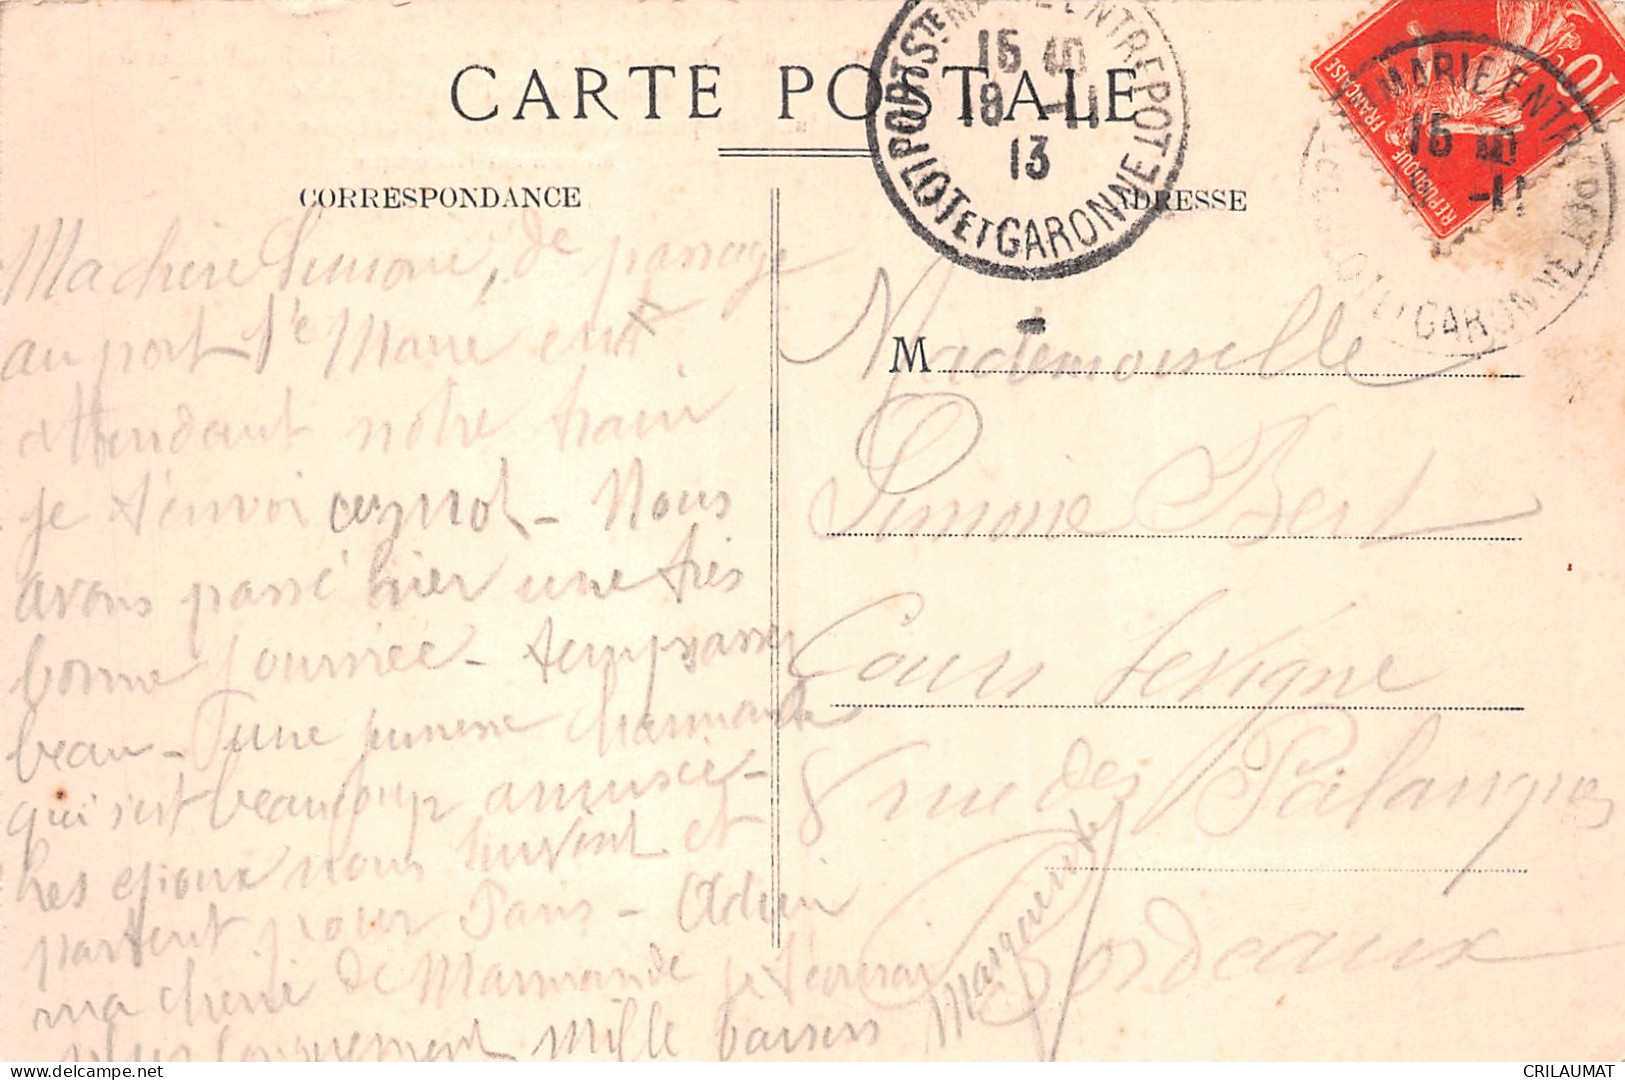 CARTE POSTALE
CORRESPONDANCE
ADRESSE
PORT-STE MARIE ENTREPOT
LOT ET GARONNE
15 40
19 -11
13
10
REPUBLIQUE FRANCAISE
MARIE ENTREPOT
15 40
-11
LOT ET GARONNE
Ma chère Simone, de passage
au port Ste Marie en
attendant notre train
je t'envoi ce mot - Nous
avons passé hier une très
bonne journée - temps assez
beau - une jeunesse charmante
qui s'est beaucoup amusée -
Les époux nous suivent et
partent pour Paris - Adieu
ma cherie de Marmande je t'ecrirai
plus longuement Mille baisers
Marguerite
M Mademoiselle
Simone Bert
Cours Sevigné
8 rue des Palanques
Bordeaux
CRILAUMAT